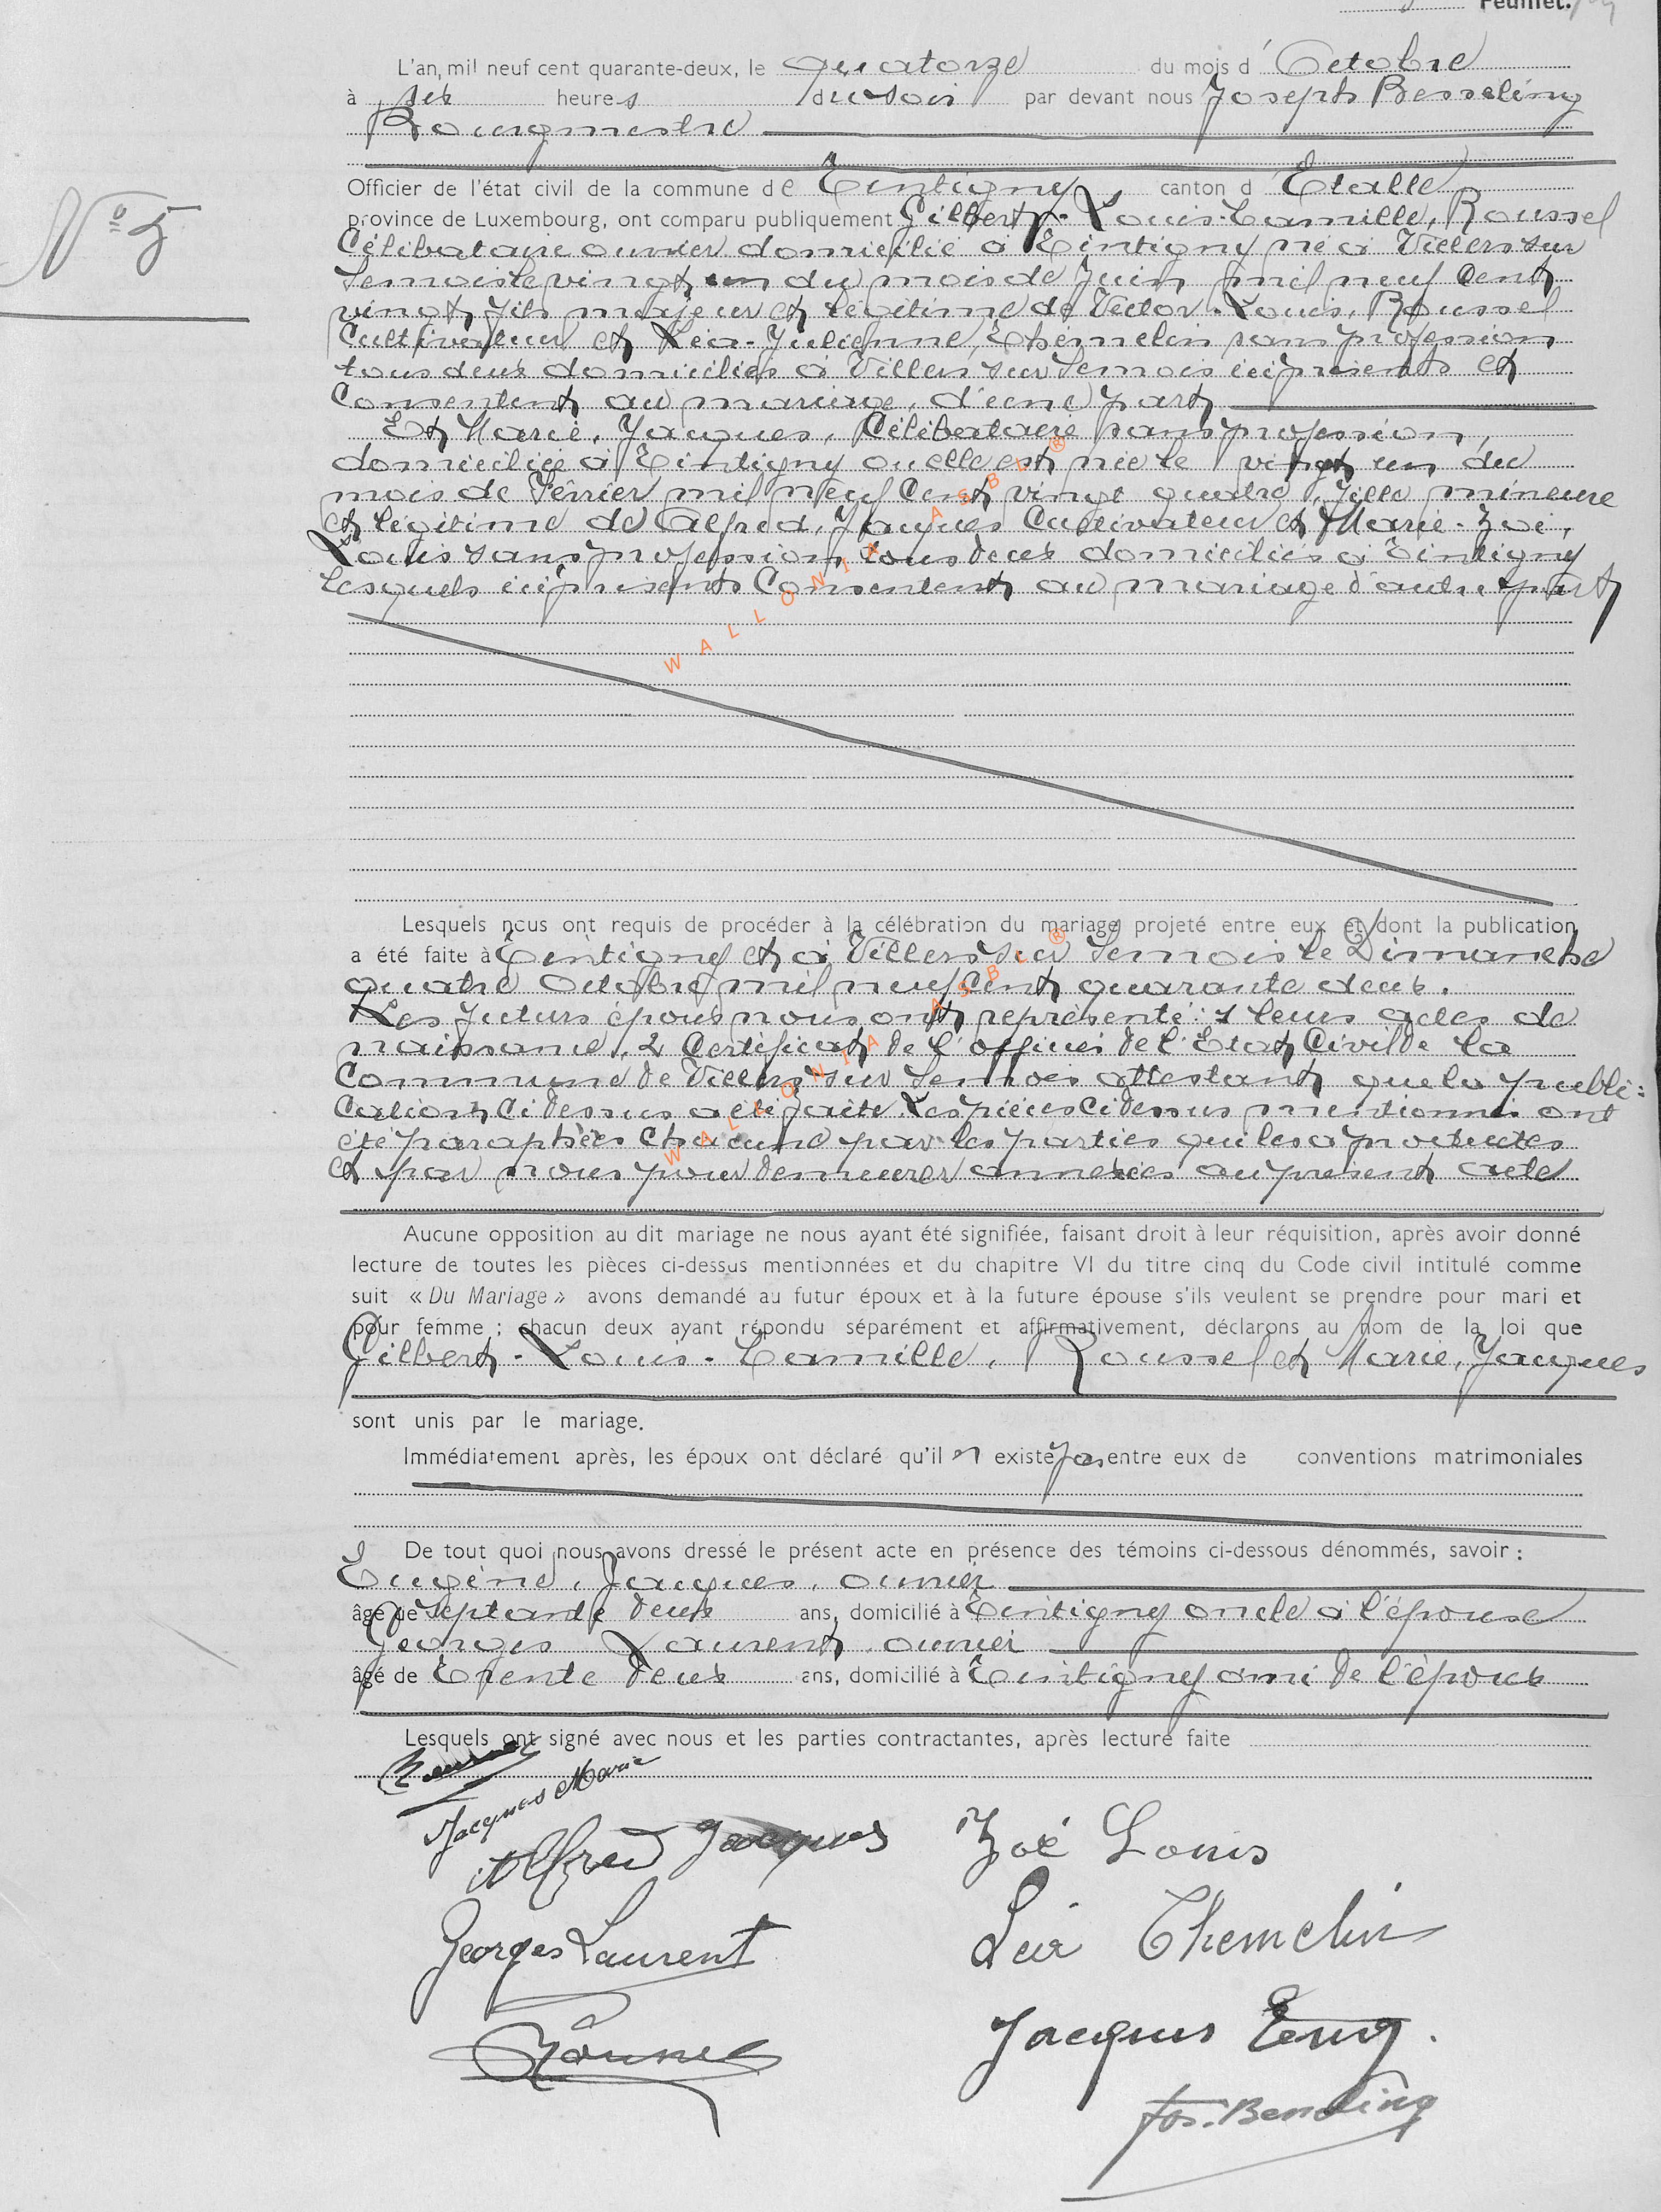 Feuillet.
L'an, mil neuf cent quarante-deux, le Quatorze du mois d'Octobre
à six heures du soir par devant nous Joseph Besseling
Bourgmestre
Officier de l'état civil de la commune de Tintigny, canton d'Etalle
province de Luxembourg, ont comparu publiquement Gilbert-Louis-Camille, Roussel
N° 5
Célibataire ouvrier domicilié à Tintigny né à Villers sur
Semois le vingt un du mois de Juin mil neuf Cent
vingt fils majeur et légitime de Victor-Louis, Roussel
Cultivateur et Léa-Julienne, Thémelin sans profession
tous deux domiciliés à Villers sur Semois ici présents et
Consentent au mariage, d'une part
Et Marie, Jacques, Célibataire sans profession,
domiciliée à Tintigny ou elle est née le vingt un du
mois de Février mil neuf Cent vingt quatre, fille mineure
et légitime de Alfred, Jacques Cultivateur et Marie-Zoé,
Louis sans profession tous deux domiciliés à Tintigny
lesquels ici présents Consentent au mariage d'autre part
Lesquels nous ont requis de procéder à la célébration du mariage projeté entre eux et dont la publication
a été faite à Tintigny et à Villers sur Semois le Dimanche
quatre Octobre mil neuf Cent quarante deux.
Les futurs époux nous ont représenté: 1 leurs actes de
naissance, 2 Certificat de l'officier de l'Etat Civil de la
Commune de Villers sur Semois attestant que la publi:
cation ci dessus a été faite. Les pièces ci dessus mentionnés ont
été paraphées chacune par les parties qui les a produites
et par nous pour demeurer annexées au présent acte
Aucune opposition au dit mariage ne nous ayant été signifiée, faisant droit à leur réquisition, après avoir donné
lecture de toutes les pièces ci-dessus mentionnées et du chapitre VI du titre cinq du Code civil intitulé comme
suit « Du Mariage » avons demandé au futur époux et à la future épouse s'ils veulent se prendre pour mari et
pour femme ; chacun deux ayant répondu séparément et affirmativement, déclarons au nom de la loi que
Gilbert-Louis-Camille, Roussel et Marie, Jacques
sont unis par le mariage.
Immédiatement après, les époux ont déclaré qu'il n existe pas entre eux de conventions matrimoniales
De tout quoi nous avons dressé le présent acte en présence des témoins ci-dessous dénommés, savoir :
Eugène, Jacques, ouvrier
âgé de septante deux ans, domicilié à Tintigny oncle à l'épouse
Georges Laurent ouvrier
âgé de Trente deux ans, domicilié à Tintigny ami de l'époux
Lesquels ont signé avec nous et les parties contractantes, après lecture faite
Jacques Marie
Alfred Jacques Zoé Louis
Georges Laurent Léa Themelin
Jacques Eug.
Jos. Besseling
WALLONIA ASBL ®
WALLONIA ASBL ®